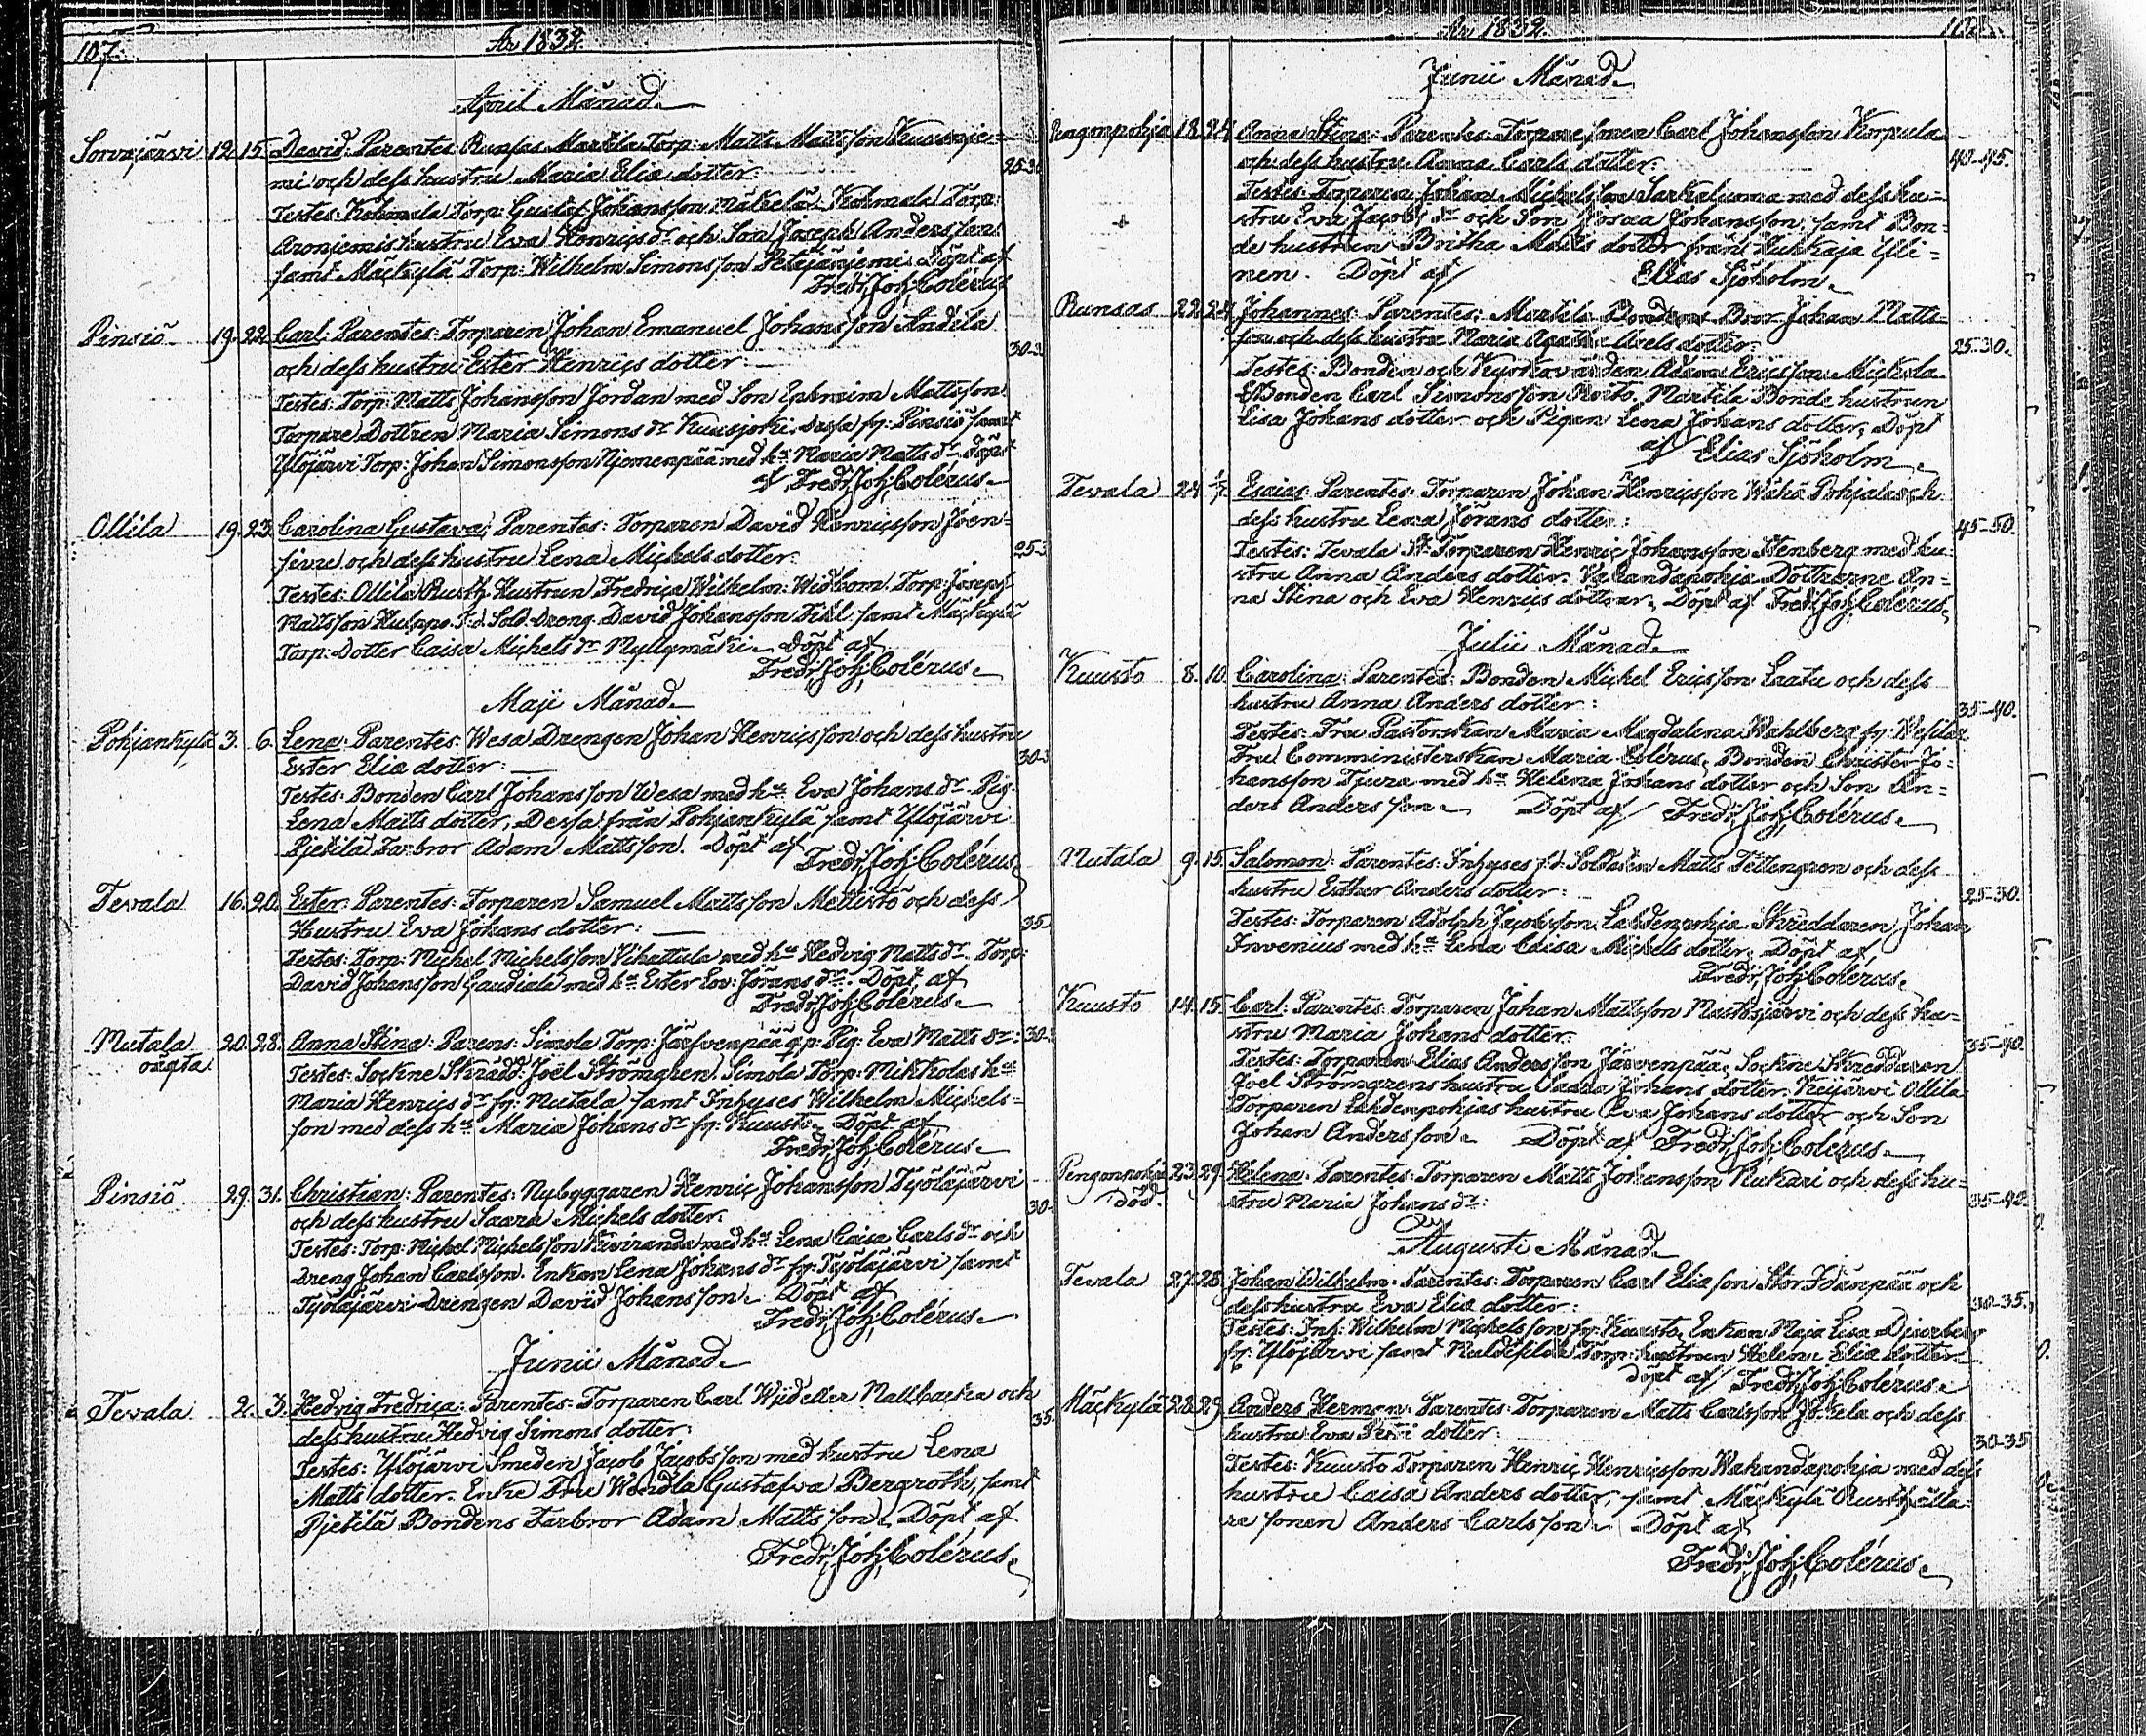 107.
År 1832.
April Månad.
Sorvajärvi 12. 15. David: Parentes Runsas Martila Torp: Matts Mattsson Kuusnie=
mi och dess hustru Maria Elia dotter: 25-30
Testes: Kohmala Torp: Gustaf Johansson Mäkelä. Kohmala Torp:
Aronjemis hustru Eva Henrics dr och Son Joseph Andersson.
samt Mäckylä Torp: Wilhelm Simonsson Petäjänjemi. Döpt af
Fredr: Joh: Colérus
Pinsiö 19. 22. Carl: Parentes: Torparen Johan Emanuel Johansson Andéla
och dess hustru Ester Henrics dotter 30-3
Testes: Torp: Matts Johansson Jordan med Son Ephraim Mattsson.
Torpare Dottren Maria Simons dr Kuusjoki, dessa fr: Pinsiö samt
Ylöjärvi Torp: Johan Simonsson Njemenpää med ha Maria Matts dr. Döpt
af Fredr: Joh: Colérus.
Ollila 19. 23. Carolina Gustava: Parentes: Torparen David Henricsson Joen=
sivu och dess hustru Lena Michels dotter: 25-3
Testes: Ollila Rusth. Hustrun Fredrica Wilhelm: Widbom. Torp: Joseph
Mattsson Hulppo. F.d. Sold. Dreng. David Johansson Fihl samt Mäckylä
Torp: Dotter Caisa Michels dr Myllymäki. Döpt af
Fredr: Joh: Colérus.
Maji Månad.
Pohjankylä 3. 6. Lena: Parentes: Wesa Drengen Johan Henricsson och dess hustru
Ester Elia dotter: 30-3
Testes: Bonden Carl Johansson Wesa med ha Eva Johans dr. Pig.
Lena Matts dotter, Dessa från Pohjankylä samt Ylöjärvi
Pjetilä Farbror Adam Mattsson. Döpt af
Fredr: Joh: Colérus
Tevala 16. 20. Ester: Parentes: Torparen Samuel Mattsson Metlistö och dess
Hustru Eva Johans dotter: 35.
Testes: Torp: Michel Michelsson Vihattula med ha Hedvig Matts dr. Torp:
David Johansson Gaudiala med ha Ester Lov: Jörans dr. Döpt af
Fredr: Joh: Colérus.
Mutala 20. 28. Anna Stina: Parens: Simola Torp: Järfvenpää qp: Pig: Eva Matts dr: 30-
oägta. Testes: Sockne Skrädd: Joel Strömgren. Simola Torp: Mikkolas ha
Maria Henrics dr fr: Mutala samt Inhyses Wilhelm Michels=
son med dess ha Maria Johans dr fr: Kuusto. Döpt af
Fredr: Joh: Colérus.
Pinsiö. 29. 31. Christian: Parentes: Nybyggaren Henric Johansson Työläjärvi
och dess hustru Saara Michels dotter. 30-
Testes: Torp: Michel Michelsson Kiviranda med ha Lena Caisa Carls dr och
Dreng Johan Carlsson. Enkan Lena Johans dr fr: Työläjärvi samt
Työläjärvi Drengen David Johansson. Döpt af
Fredr: Joh: Colérus.
Junii Månad.
Tevala 2. 3. Hedvig Fredrica: Parentes: Torparen Carl Wideller Mallbacka och
dess hustru Hedvig Simons dotter: 35.
Testes: Ylöjärvi Smeden Jacob Jacobsson med hustru Lena
Matts dotter. Enke Fru Wendla Gustafva Bergroth, samt
Pjetilä Bondens Farbror Adam Mattsson. Döpt af
Fredr: Joh: Colérus.
År 1832.
Junii Månad.
Pengonpohja 18. 24. Anna Stina: Parentes: Torparesonen Carl Johansson Korpula
och dess hustru Anna Carls dotter: 40-45.
Testes: Torparen Johan Michelsson Sarkaluoma med dess hu=
stru Eva Jacobs dr och Son Josua Johansson. samt Bon=
de hustrun Britha Matts dotter från Kuhkaja Yli=
nen. Döpt af Elias Sjöholm.
Runsas 22. 24. Johannes: Parentes: Martila Bondens Bror Johan Matts=
son och dess hustru Maria Agatha Axels dotter: 25-30.
Testes: Bonden och Kyrkovärden Adam Ericsson Mickola
Bonden Carl Simonsson Roito. Martila Bonde hustrun
Lisa Johans dotter och Pigan Lena Johans dotter, Döpt
af Elias Sjöholm.
Tevala 24 1/7. Esaias: Parentes: Torparen Johan Henricsson Wähä Pohjala och
dess hustru Lena Jörans dotter: 45-50.
Testes: Tevala Torparen Henric Johansson Stenberg med hu=
stru Anna Anders dotter. Vahandapohja Döttrarne An=
na Stina och Eva Henrics döttrar. Döpt af Fredr: Joh: Colérus.
Julii Månad.
Kuusto 8. 10. Carolina: Parentes: Bonden Michel Ericsson Laatu och dess
hustru Anna Anders dotter: 35-40.
Testes: Fru Pastorskan Maria Magdalena Wahlberg fr: Vesilax
Fru Comministerskan Maria Colérus, Bonden Christer Jo=
hansson Tjura med ha Helena Johans dotter och Son An=
ders Andersson. Döpt af Fredr: Joh: Colérus.
Mutala 9. 15. Salomon: Parentes: Inhyses f.d. Soldaten Matts Tettengren och dess
hustru Esther Anders dotter: 25-30.
Testes: Torparen Adolph Jacobsson Lahdenpohja. Skreddaren Johan
Invenius med ha Lena Caisa Michels dotter. Döpt af
Fredr: Joh: Colérus.
Kuusto 14. 15. Carl: Parentes: Torparen Johan Mattsson Mastosjärvi och dess hu=
stru Maria Johans dotter: 35-40.
Testes: Torparen Elias Andersson Järvenpää, Sockne Skreddaren
Joel Strömgrens hustru Saara Johans dotter. Keijärvi Ollila
Torparen Lahdenpohjas hustru Eva Johans dotter och Son
Johan Andersson. Döpt af Fredr: Joh: Colérus.
Pengonpohja 23. 29. Helena: Parentes: Torparen Matts Johansson Kukari och dess hu=
Död. stru Maria Johans dr: 35-40.
Augusti Månad
Tevala 27. 28. Johan Wilhelm: Parentes: Torparen Carl Eliasson Stor Idänpää och
dess hustru Eva Elia dotter: 30-35.
Testes: Inh: Wilhelm Michelsson fr: Kuusto, Enkan Maja Lisa
fr: Ylöjärvi samt Torp: hustrun Helena Elia dotter.
Döpt af Fredr: Joh: Colérus.
Mäckylä 28. 29. Anders Herman: Parentes: Torparen Matts Carlsson och dess
hustru Eva dotter: 30-35
Testes: Kuusto Torparen Henric Henricsson Wahandapohja med dess
hustru Caisa Anders dotter, samt Mäckylä Rusthålla=
re sonen Anders Carlsson. Döpt af
Fredr: Joh: Colérus.